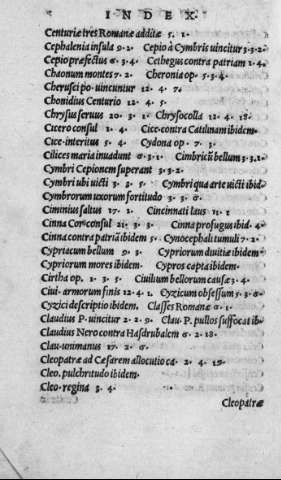 INDEX
Centuriæ tres Romanæ additæ 5. 1.
Cephalenia insula 9. 2. Cepio à Cymbris uincitur 3. 3. 2.
Cepio præfectus σ. 3. 4. Cethegus contra patriam 1. 4.
Chaonum montes 7. 2. Cheronia op. 5. 3. 4.
Cherusci po. uincuntur 12. 4. 7.
Chonidius Centurio 12. 4. 5.
Chrysius seruus 20. 3. 1. Chrysocolla 12. 4. 18.
Cicero consul 1. 4. Cice. contra Catilinam ibidem.
Cice. interitus 5. 4. Cydona op. 7. 3.
Cilices maria inuadunt σ. 3. 1. Cimbricū bellum 3. 3. 2.
Cymbri Cepionem superant 3. 3. 2.
Cymbri ubi uicti 3. 3. 5. Cymbri qua arte uicti ibid.
Cymbrorum uxorum fortitudo 3. 3. σ.
Ciminius saltus 17. 1. Cincinnati laus 11. 1
Cinna Cor. consul 21. 3. 3. Cinna profugus ibid. 4.
Cinna contra patriā ibidem 5. Cynocephali tumuli 7. 2.
Cypriacum bellum 9. 3. Cypriorum diuitiæ ibidem
Cypriorum mores ibidem. Cypros capta ibidem.
Cirtha op. 1. 3. 5. Ciuilium bellorum causæ 3. 4.
Ciui. armorum finis 12. 4. 1. Cyzicum obsessum 5. 3. σ.
Cyzici descriptio ibidem. Classes Romanæ σ. 1.
Claudius P. uincitur 2. 2. 9. Clau. P. pullos suffocat ib.
Claudius Nero contra Hasdrubalem σ. 2. 18.
Clau. unimanus 17. 2. σ.
Cleopatræ ad Cæsarem allocutio ca. 2. 4. 19.
Cleo. pulchritudo ibidem.
Cleo. regina 3. 4.
Cleopatræ